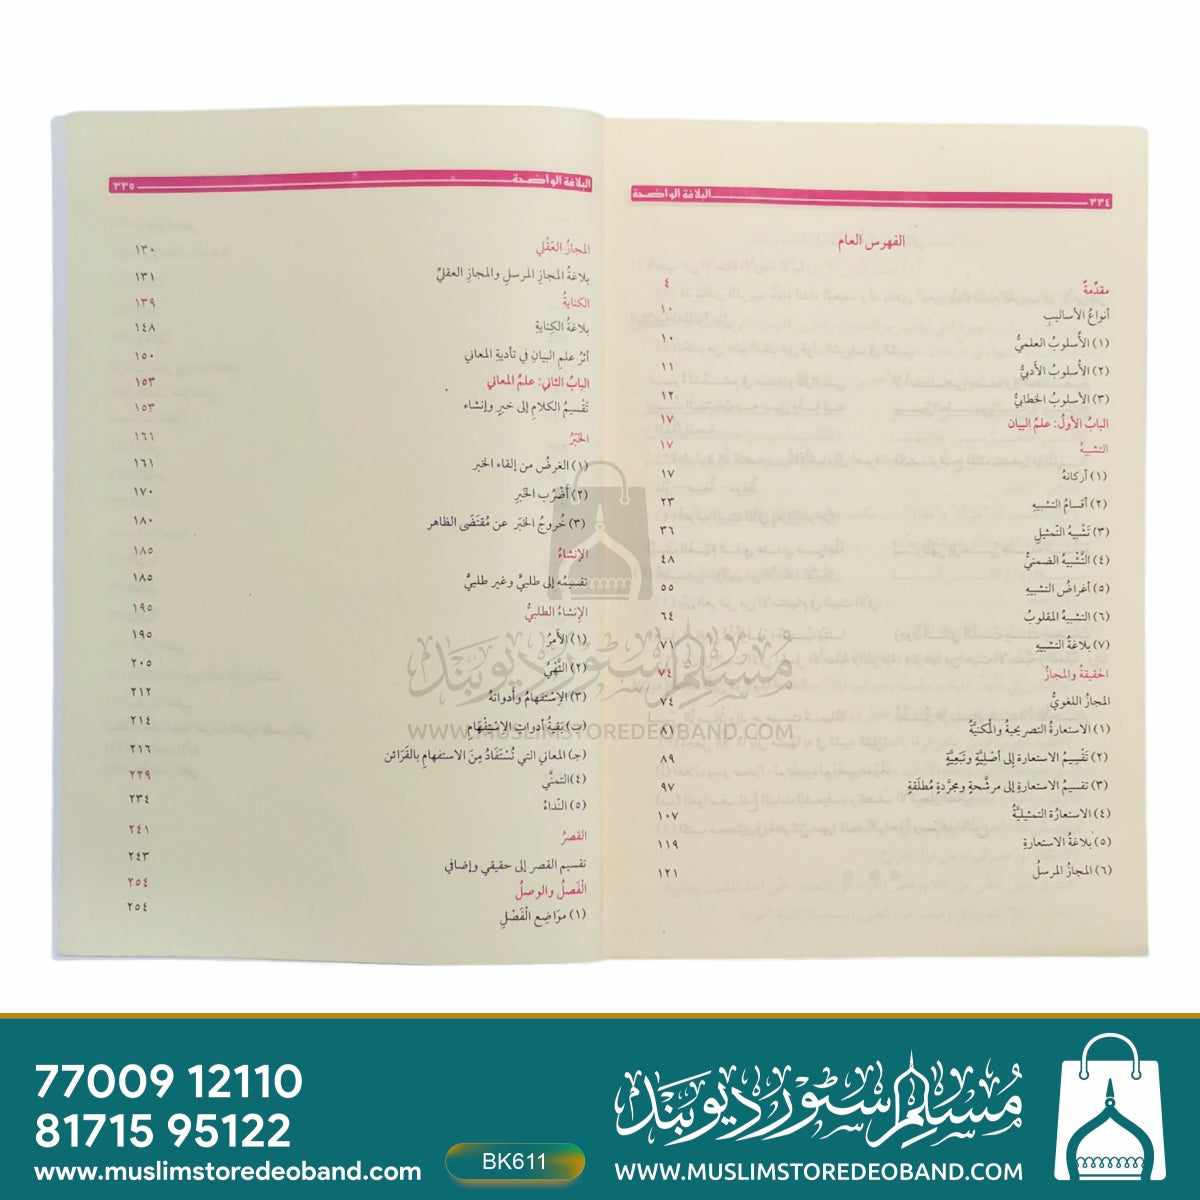 ٣٣٤ البلاغة الواضحة
الفهرس العام
مقدِّمةٌ ٤
أنواعُ الأساليبِ ١٠
(١) الأُسلوبُ العلميُّ ١٠
(٢) الأُسلوبُ الأدبيُّ ١١
(٣) الأسلوبُ الخطابيُّ ١٢
البابُ الأولُ: علمُ البيان ١٧
التشبيهُ ١٧
(١) أركانهُ ١٧
(٢) أقسامُ التشبيهِ ٢٣
(٣) تَشْبيهُ التّمثيلِ ٣٦
(٤) التَّشْبيهُ الضمنيُّ ٤٨
(٥) أغراضُ التشبيهِ ٥٥
(٦) التشبيهُ المقلوبُ ٦٤
(٧) بلاغةُ التشبيهِ ٧١
الحقيقةُ والمجازُ ٧٤
المجازُ اللغويُّ ٧٤
(١) الاستعارةُ التصريحيةُ والمكنيَّةُ ٨١
(٢) تَقْسِيمُ الاستعارة إلى أصْليَّةٍ وتَبَعِيَّةٍ ٨٩
(٣) تقسيمُ الاستعارةِ إلى مرشَّحةٍ ومجرَّدةٍ مُطلَقةٍ ٩٧
(٤) الاستعارُة التمثيليَّةُ ١٠٧
(٥) بلاغةُ الاستعارةِ ١١٩
(٦) المجازُ المرسلُ ١٢١
البلاغة الواضحة ٣٣٥
المجازُ العَقْلِي ١٣٠
بلاغةُ المجازِ المرسلِ والمجازِ العقليِّ ١٣١
الكنايةُ ١٣٩
بلاغةُ الكِنايةِ ١٤٨
أثرُ علمِ البيانِ في تأديةِ المعاني ١٥٠
البابُ الثاني: علمُ المعاني ١٥٣
تَقْسيمُ الكلامِ إلى خبرٍ وإنشاء ١٥٣
الخَبَرُ ١٦١
(١) الغرضُ من إلقاء الخبر ١٦١
(٢) أَضْرُب الخَبَرِ ١٧٠
(٣) خُروجُ الخبَر عن مُقتَضَى الظاهر ١٨٠
الإنشاءُ ١٨٥
تقسيمُه إلى طلبيٍّ وغير طلبيٍّ ١٨٥
الإنشاءُ الطلبيُّ ١٩٥
(١) الأمرُ ١٩٥
(٢) النَّهْيُ ٢٠٥
(٣) الاسْتفهامُ وأدواتهُ ٢١٢
(ب) بَقيةُ أدواتِ الاسْتِفْهامِ ٢١٤
(ج) المعاني التي تُسْتَفَادُ مِنَ الاستفهامِ بالقَرَائن ٢١٦
(٤) التمنَّي ٢٢٩
(٥) النّداءُ ٢٣٤
القصرُ ٢٤١
تقسيم القصر إلى حقيقي وإضافي ٢٤٣
الْفَصلُ والوصلُ ٢٥٤
(١) موَاضِع الْفَصْلِ ٢٥٤
مسلم سٹور دیوبند
WWW.MUSLIMSTOREDEOBAND.COM
77009 12110
81715 95122
www.muslimstoredeoband.com
BK611
مسلم سٹور دیوبند
WWW.MUSLIMSTOREDEOBAND.COM